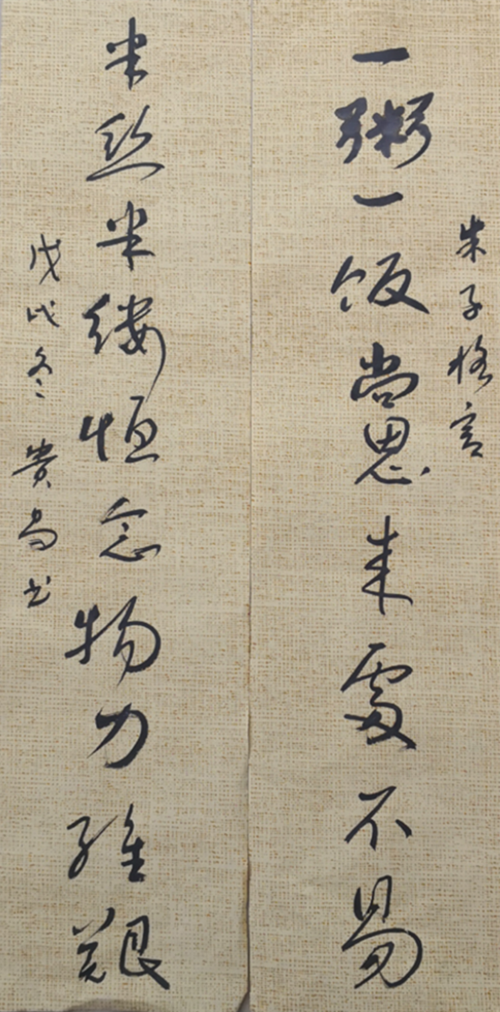 朱子格言
一粥一饭當思来處不易
半丝半缕恒念物力维艱
戊戌冬 貴尚书